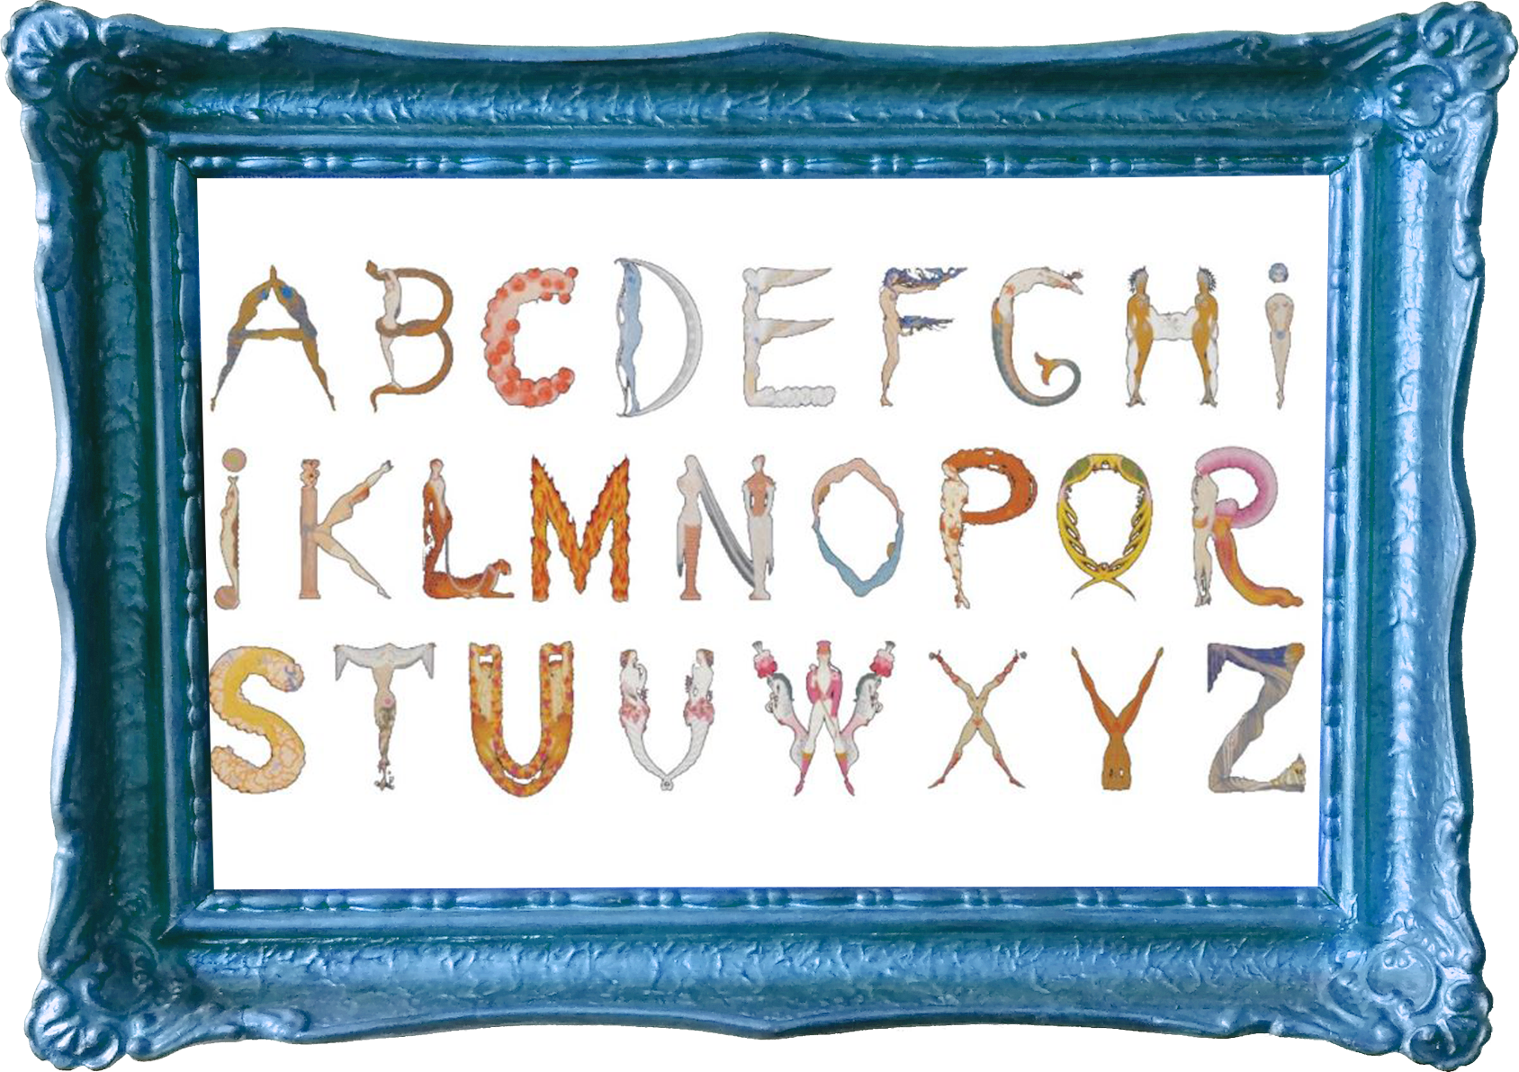 ABCDEFGHi
jKLMNOPQR
STUVWXYZ